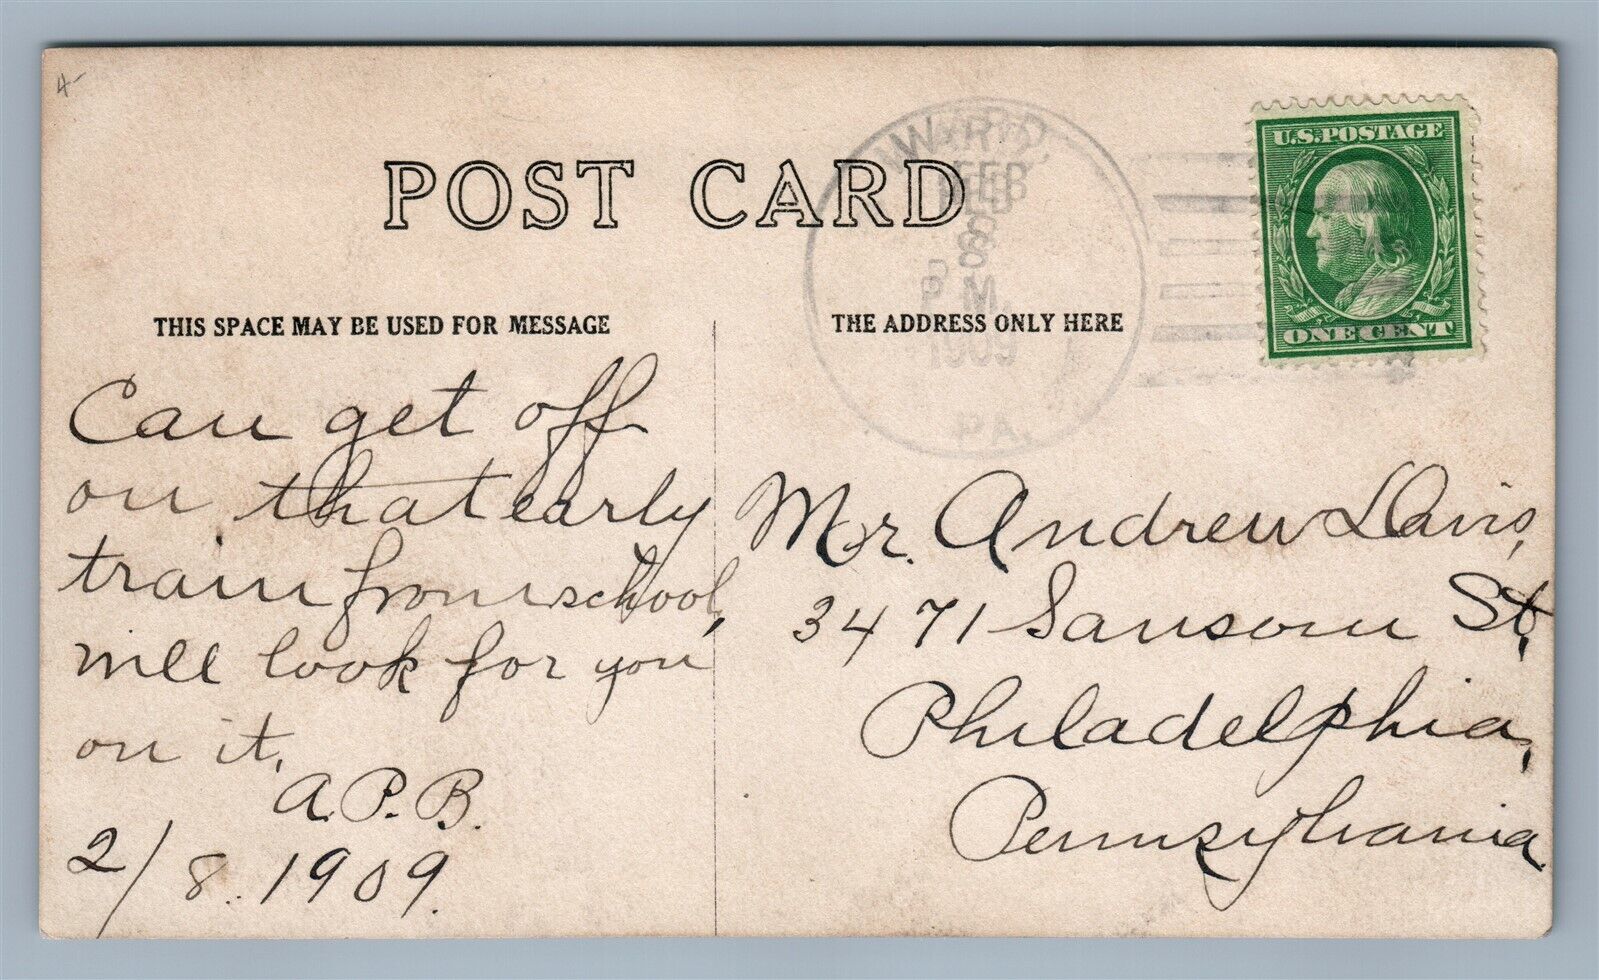 4-
POST CARD
THIS SPACE MAY BE USED FOR MESSAGE
THE ADDRESS ONLY HERE
FEB
8
P.M.
1909
PA.
U.S. POSTAGE
ONE CENT
Can get off
on that early
train from school,
will look for you
on it.
A.P.B.
2/8. 1909.
Mr. Andrew Davis,
3471 Sansom St.,
Philadelphia,
Pennsylvania